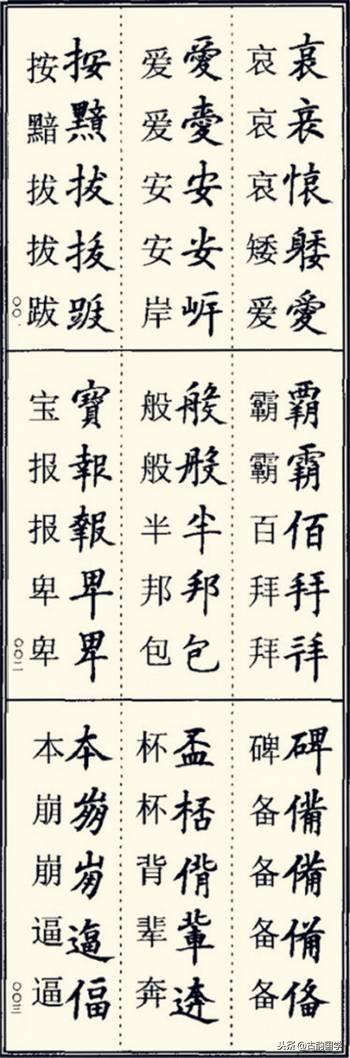 愛
哀哀哀矮爱
愛安
爱爱安安岸
按拔
按黯拔拔跋
〇〇一
覇霸佰拜
霸霸百拜拜
般般半邦包
般般半邦包
寶報報卑卑
宝报报卑卑
〇〇二
碑備備備俻
碑备备备备
盃桮偝輩
杯杯背辈奔
本崩逼偪
本崩崩逼逼
〇〇三
头条@古韵国学